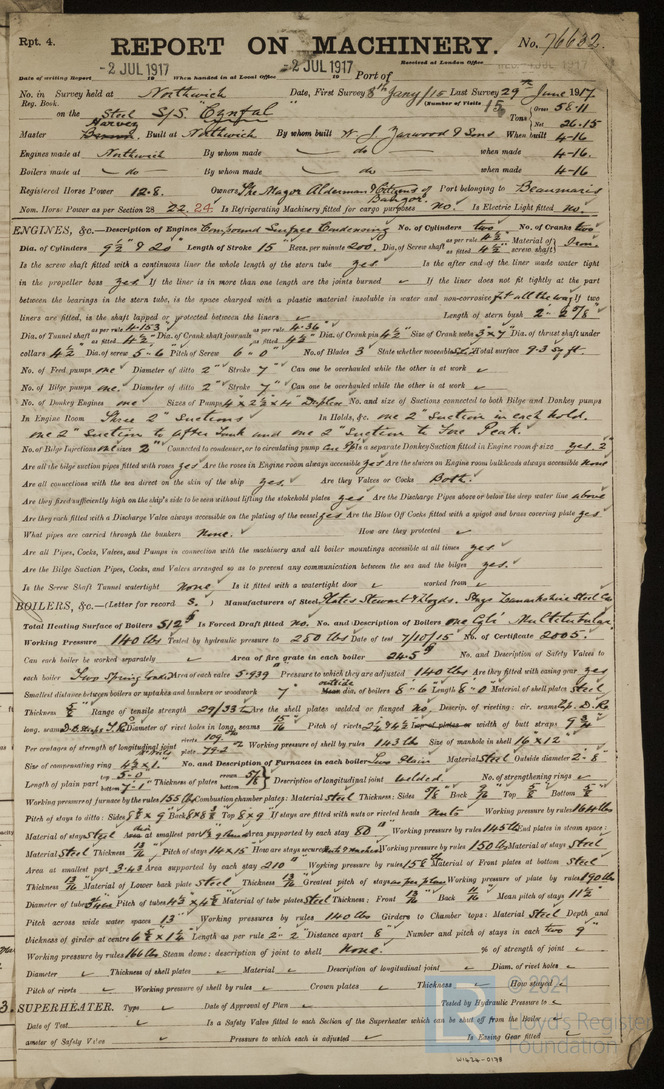 Rpt. 4.
REPORT ON MACHINERY.
No. 76632.
-2 JUL 1917 -2 JUL 1917
Date of writing Report 19 When handed in at Local Office 19 Port of
Received at London Office
No. in Survey held at Northwich Date, First Survey 8th Jany/15 Last Survey 29th June 1917.
Reg. Book. (Number of Visits 15
on the Steel S/S. "Cynfal" Tons Gross 58.11 Net 26.15
Master Harvey Built at Northwich By whom built W. J. Yarwood & Sons When built 4-16
Engines made at Northwich By whom made do when made 4-16.
Boilers made at do By whom made do when made 4-16
Registered Horse Power 12.8. Owners The Mayor Alderman & Citizens of Bangor. Port belonging to Beaumaris
Nom. Horse Power as per Section 28 22. 24 Is Refrigerating Machinery fitted for cargo purposes No. Is Electric Light fitted No.
ENGINES, &c.—Description of Engines Compound Surface Condensing No. of Cylinders two No. of Cranks two
Dia. of Cylinders 9½" & 20" Length of Stroke 15 Revs. per minute 200. Dia. of Screw shaft as per rule 4½ as fitted 4½" Material of screw shaft Iron
Is the screw shaft fitted with a continuous liner the whole length of the stern tube yes Is the after end of the liner made water tight
in the propeller boss yes If the liner is in more than one length are the joints burned ✓ If the liner does not fit tightly at the part
between the bearings in the stern tube, is the space charged with a plastic material insoluble in water and non-corrosive fit all the way If two
liners are fitted, is the shaft lapped or protected between the liners ✓ Length of stern bush 2' 2⅞"
Dia. of Tunnel shaft as per rule 4.153 as fitted 4½" Dia. of Crank shaft journals as per rule 4.36" as fitted 4½" Dia. of Crank pin 4½" Size of Crank webs 3"x7" Dia. of thrust shaft under
collars 4½ Dia. of screw 5'-6" Pitch of Screw 6'-0" No. of Blades 3 State whether moveable Total surface 9.3 sq ft.
No. of Feed pumps one Diameter of ditto 2" Stroke 7" Can one be overhauled while the other is at work ✓
No. of Bilge pumps one. Diameter of ditto 2" Stroke 7" Can one be overhauled while the other is at work ✓
No. of Donkey Engines one Sizes of Pumps 4 x 2½ x 4" Duplex No. and size of Suctions connected to both Bilge and Donkey pumps
In Engine Room Three 2" Suctions In Holds, &c. one 2" Suction in each hold.
one 2" Suction to After Tank and one 2" Suction to Fore Peak.
No. of Bilge Injections one sizes 2" Connected to condenser, or to circulating pump Is a separate Donkey Suction fitted in Engine room & size yes. 2"
Are all the bilge suction pipes fitted with roses yes Are the roses in Engine room always accessible yes Are the sluices on Engine room bulkheads always accessible None
Are all connections with the sea direct on the skin of the ship yes. Are they Valves or Cocks Both.
Are they fixed sufficiently high on the ship's side to be seen without lifting the stokehold plates yes Are the Discharge Pipes above or below the deep water line above
Are they each fitted with a Discharge Valve always accessible on the plating of the vessel yes Are the Blow Off Cocks fitted with a spigot and brass covering plate yes
What pipes are carried through the bunkers None. How are they protected ✓
Are all Pipes, Cocks, Valves, and Pumps in connection with the machinery and all boiler mountings accessible at all times yes
Are the Bilge Suction Pipes, Cocks, and Valves arranged so as to prevent any communication between the sea and the bilges yes.
Is the Screw Shaft Tunnel watertight None Is it fitted with a watertight door ✓ worked from ✓
BOILERS, &c.—(Letter for record S.) Manufacturers of Steel Plates Stewart & Lloyds. Stays Lanarkshire Steel Co
Total Heating Surface of Boilers 512 Is Forced Draft fitted No. No. and Description of Boilers one Cyl! Multitubular
Working Pressure 140 lbs Tested by hydraulic pressure to 280 lbs Date of test 7/10/15 No. of Certificate 2005.
Can each boiler be worked separately ✓ Area of fire grate in each boiler 24.5 No. and Description of Safety Valves to
each boiler Two Spring Loaded Area of each valve 3.939 Pressure to which they are adjusted 140 lbs Are they fitted with easing gear yes
Smallest distance between boilers or uptakes and bunkers or woodwork 7" outside dia. of boilers 8'-6 Length 8'-0 Material of shell plates Steel
Thickness Range of tensile strength 29/33 tns Are the shell plates welded or flanged No. Descrip. of riveting: cir. seams Lap. D. R.
long. seams Diameter of rivet holes in long. seams 15/16 Pitch of rivets width of butt straps 9¾
Per centages of strength of longitudinal joint Working pressure of shell by rules 143 lbs Size of manhole in shell 16"x12"
Size of compensating ring No. and Description of Furnaces in each boiler Two Plain Material Steel Outside diameter 2'-8"
Length of plain part top 5'-0 bottom 7'-1" Thickness of plates crown bottom 5/8 Description of longitudinal joint welded. No. of strengthening rings ✓
Working pressure of furnace by the rules 155 lbs Combustion chamber plates: Material Steel Thickness: Sides Back Top Bottom
Pitch of stays to ditto: Sides Back Top 8x9 If stays are fitted with nuts or riveted heads Nuts Working pressure by rules 164 lbs
Material of stays Steel at smallest part Area supported by each stay 80 Working pressure by rules 145 lbs End plates in steam space:
Material Steel Thickness 13/16 Pitch of stays 14 x 15" How are stays secured Working pressure by rules 150 lbs Material of stays Steel
Area at smallest part 3.43 Area supported by each stay 210 Working pressure by rules 158 lbs Material of Front plates at bottom Steel
Thickness 13/16 Material of Lower back plate Steel Thickness 13/16 Greatest pitch of stays as per plan Working pressure of plate by rules 190 lbs
Diameter of tubes Pitch of tubes 4½ x 4½ Material of tube plates Steel Thickness: Front 13/16 Back 11/16 Mean pitch of stays 11½
Pitch across wide water spaces 13" Working pressures by rules 140 lbs Girders to Chamber tops: Material Steel Depth and
thickness of girder at centre Length as per rule 2' 2" Distance apart 8" Number and pitch of stays in each two 9"
Working pressure by rules 166 lbs Steam dome: description of joint to shell None. % of strength of joint ✓
Diameter ✓ Thickness of shell plates ✓ Material ✓ Description of longitudinal joint ✓ Diam. of rivet holes ✓
Pitch of rivets ✓ Working pressure of shell by rules ✓ Crown plates ✓ Thickness ✓ How stayed ✓
SUPERHEATER. Type ✓ Date of Approval of Plan ✓ Tested by Hydraulic Pressure to ✓
Date of Test ✓ Is a Safety Valve fitted to each Section of the Superheater which can be shut off from the Boiler ✓
ameter of Safety Valve ✓ Pressure to which each is adjusted ✓ Is Easing Gear fitted ✓
© 2021
Lloyd's Register
Foundation
W1424-0178